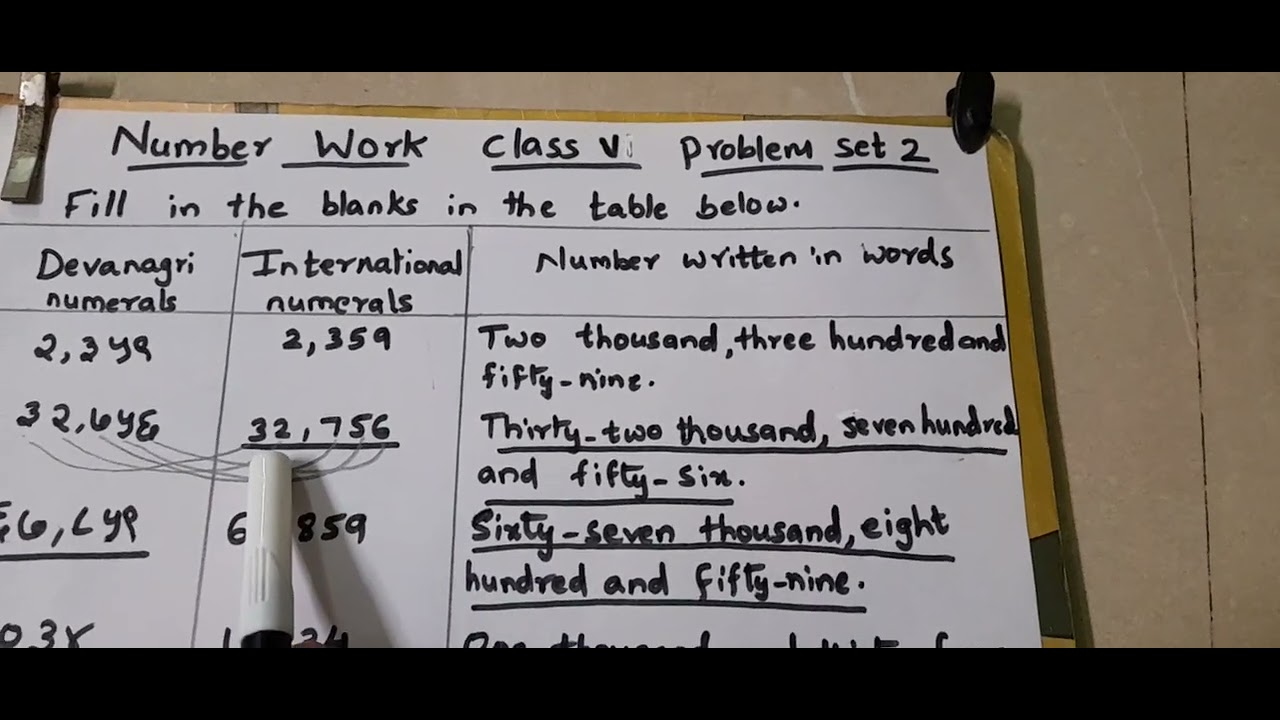 Number Work Class Vi Problem set 2
Fill in the blanks in the table below.
Devanagri
numerals
International
numerals
Number written in words
२,३५९
2,359
Two thousand, three hundred and
fifty-nine.
३२,७५६
32,756
Thirty-two thousand, seven hundred
and fifty-six.
६७,८५९
6 859
Sixty-seven thousand, eight
hundred and fifty-nine.
०३४
34
One thousand